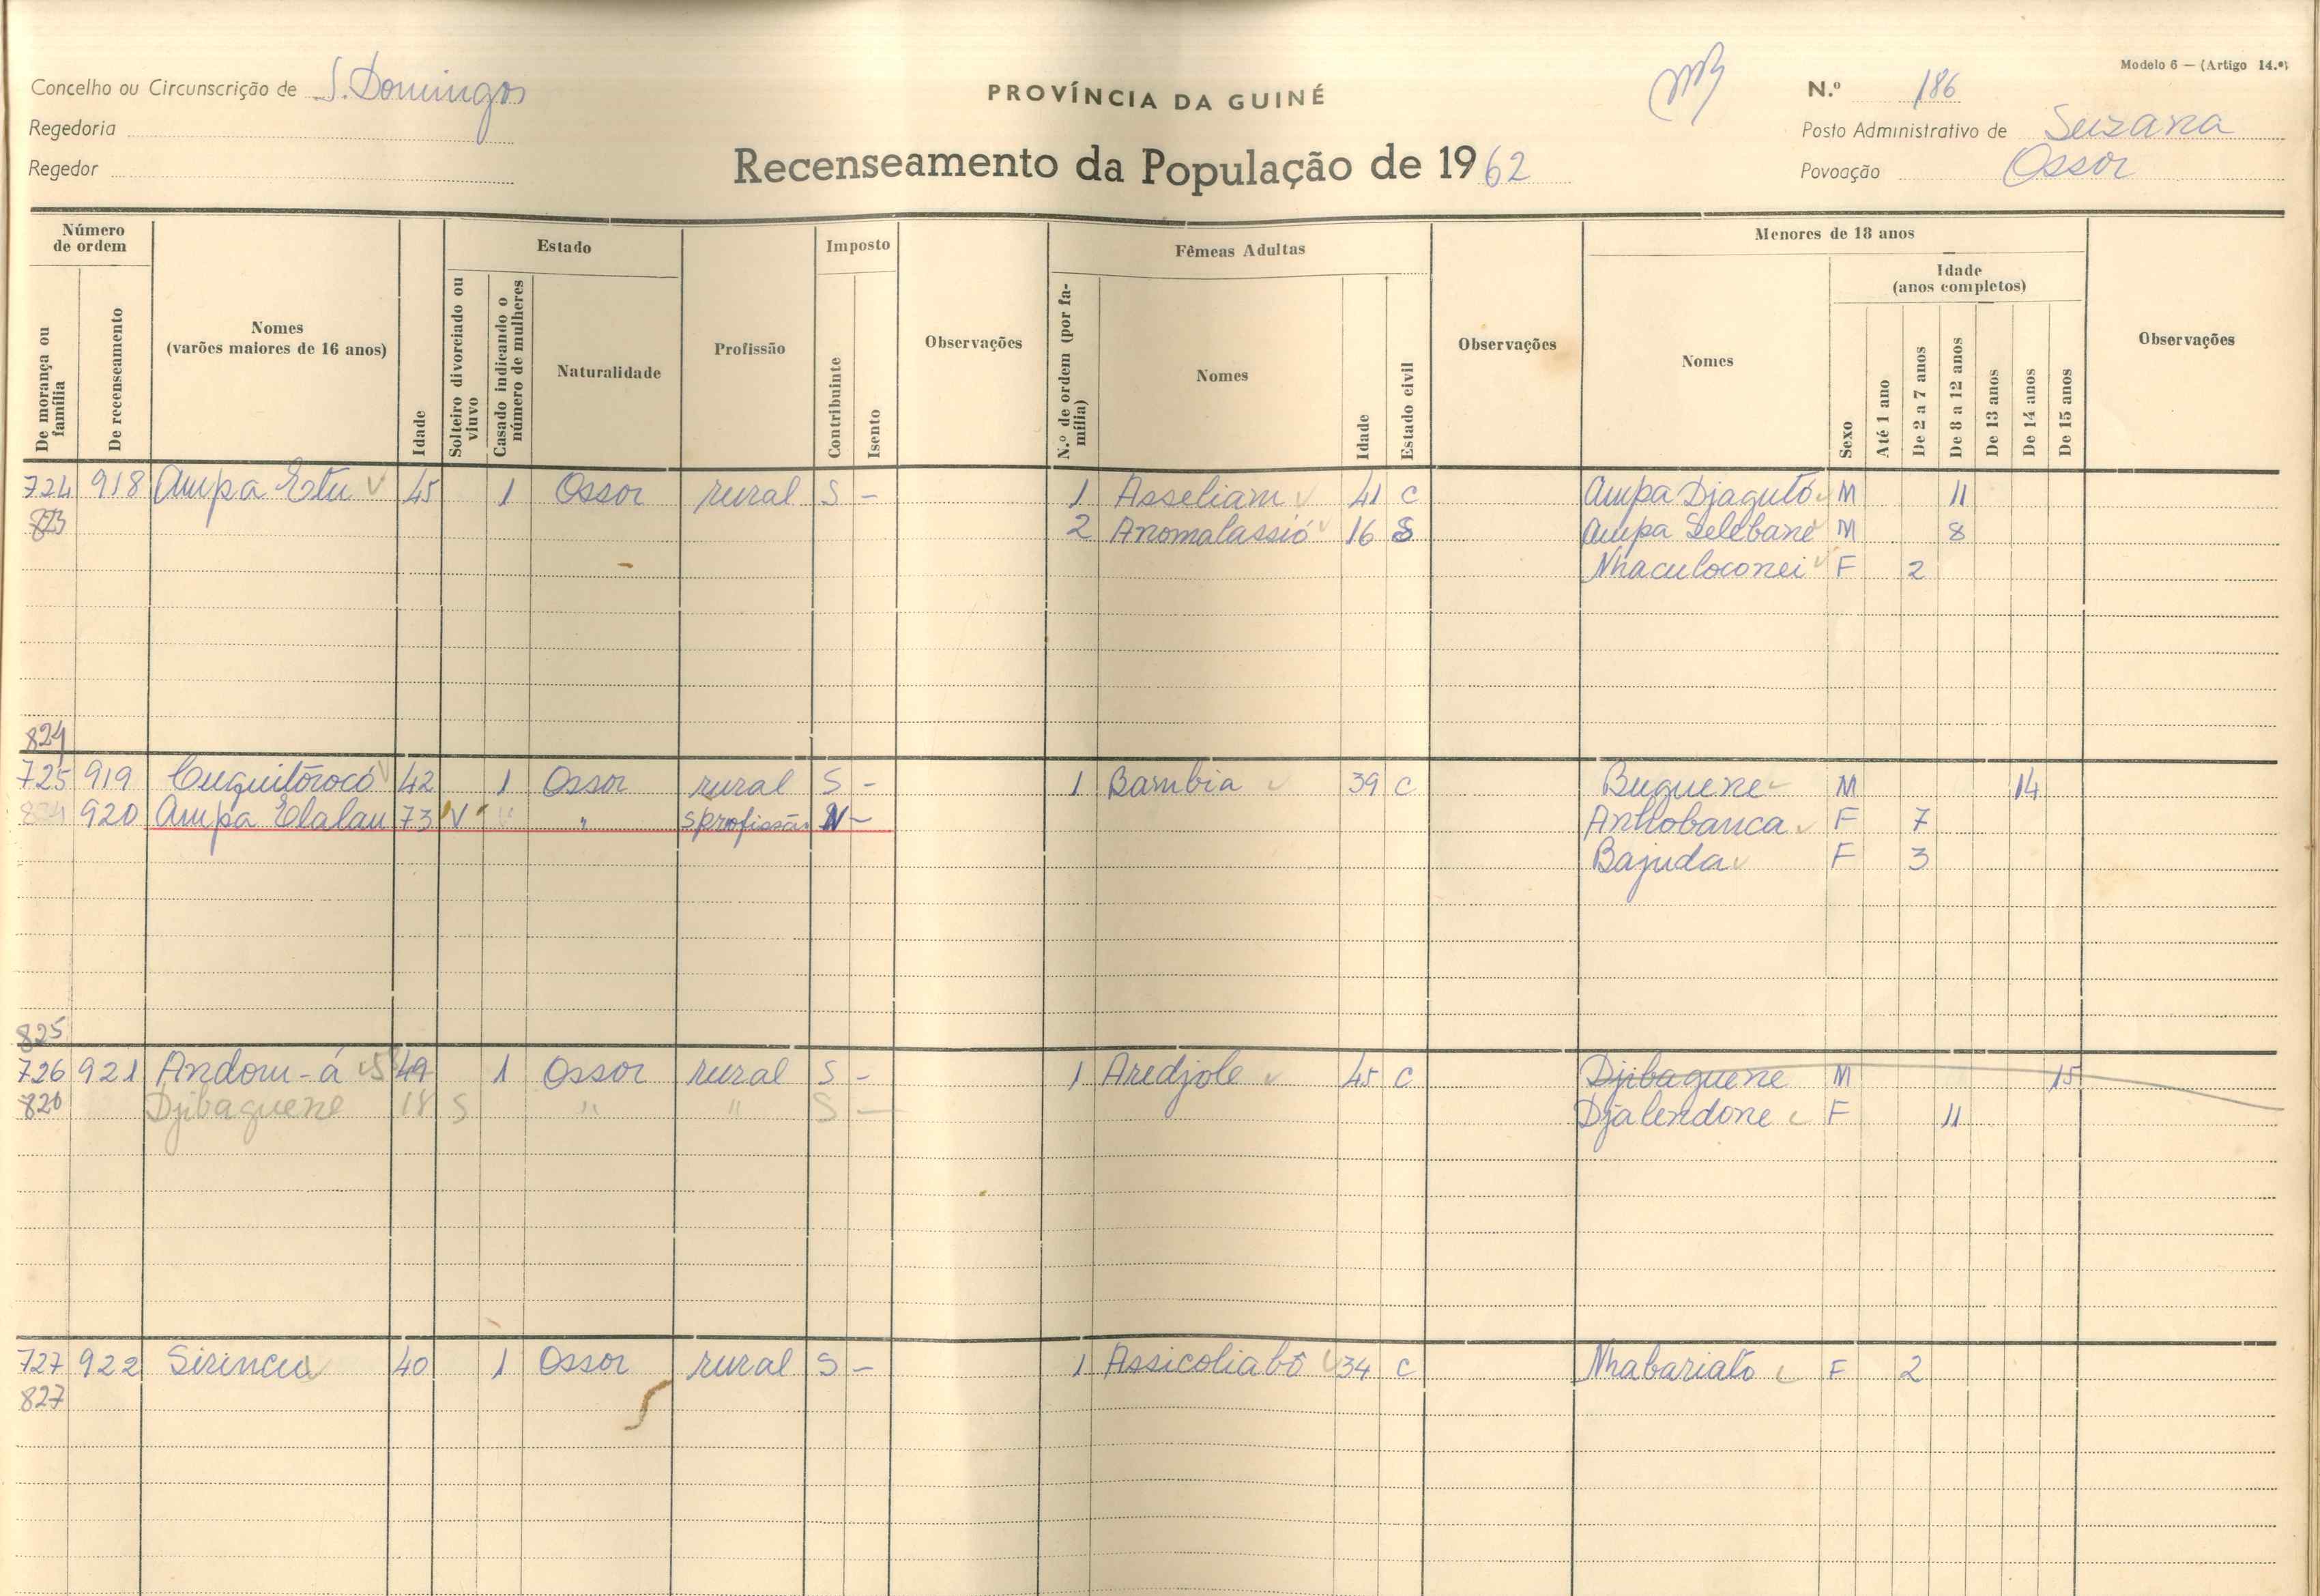 Modelo 6 — (Artigo 14.º)
Concelho ou Circunscrição de S. Domingos
PROVÍNCIA DA GUINÉ
N.º 186
Regedoria
Posto Administrativo de Suzana
Regedor
Recenseamento da População de 1962
Povoação Ossor
Número de ordem
Estado
Imposto
Fêmeas Adultas
Menores de 18 anos
Idade (anos completos)
De morança ou família
De recenseamento
Nomes (varões maiores de 16 anos)
Idade
Solteiro divorciado ou viuvo
Casado indicando o número de mulheres
Naturalidade
Profissão
Contribuinte
Isento
Observações
N.º de ordem (por família)
Nomes
Idade
Estado civil
Observações
Nomes
Sexo
Até 1 ano
De 2 a 7 anos
De 8 a 12 anos
De 13 anos
De 14 anos
De 15 anos
Observações
724 918 Ampa Estu 45 1 Ossor rural S - 1 Asseliam 41 C Ampa Djagutó M 11
823 2 Anomalassió 16 S Ampa Selebane M 8
Nhaculoconei F 2
824
725 919 Cuquitōrocó 42 1 Ossor rural S - 1 Bambia 39 C Buguene M 14
920 Ampa Elalau 73 V " sprofissão N - Anhobanca F 7
Bajuda F 3
825
726 921 Andom-á 49 1 Ossor rural S - 1 Aredjole 45 C Djibaguene M 15
826 Djibaguene 18 S " " S — Djalendone F 11
727 922 Sirincu 40 1 Ossor rural S - 1 Assicoliabó 34 C Nhabariató F 2
827